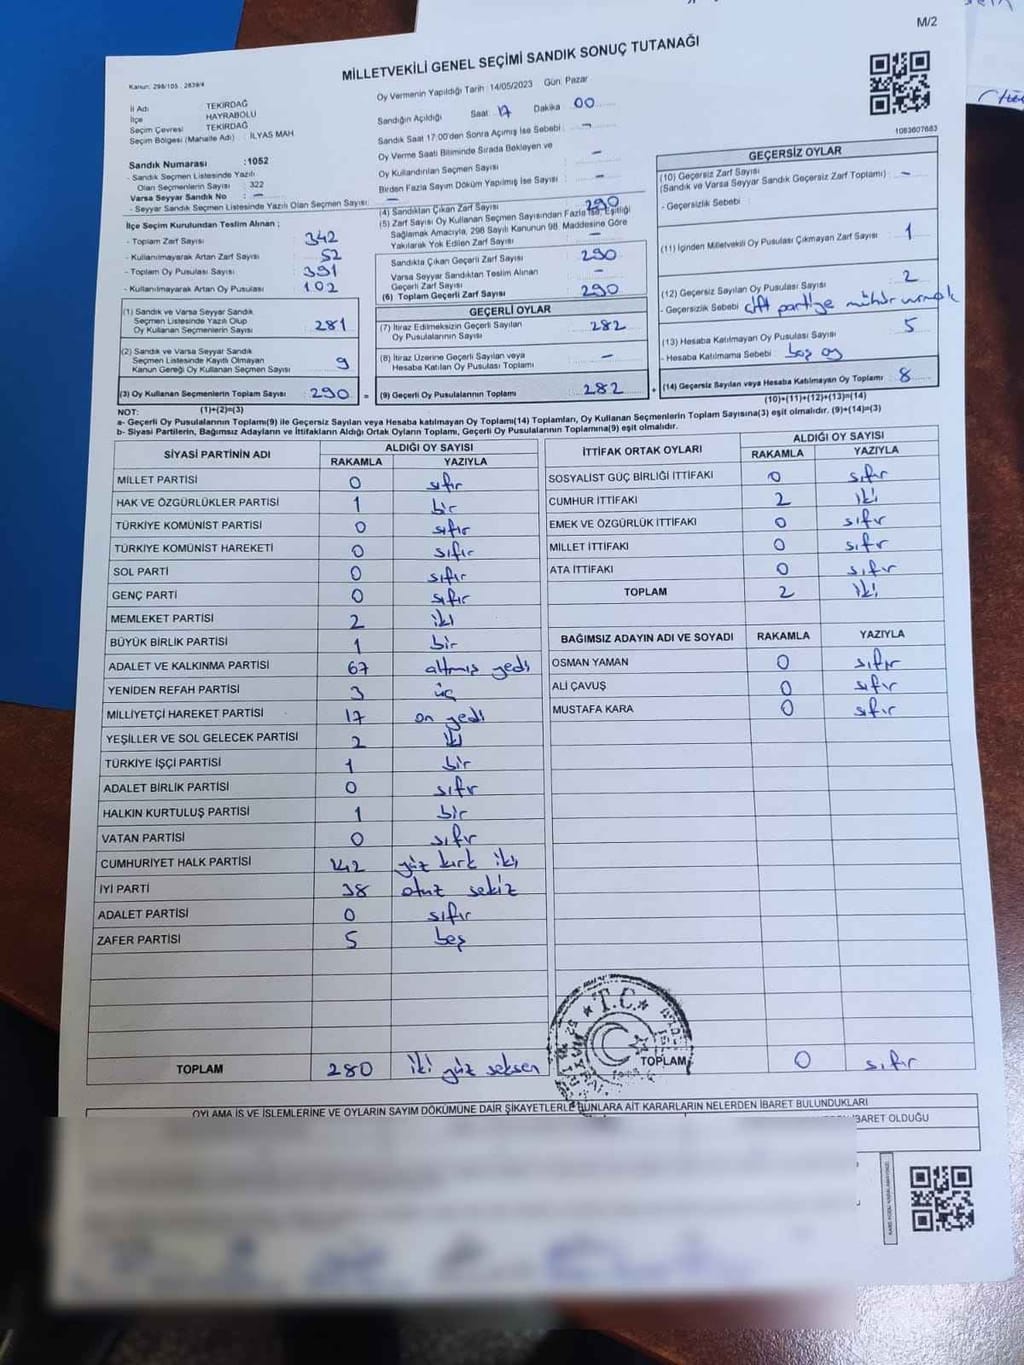 M/2
MİLLETVEKİLİ GENEL SEÇİMİ SANDIK SONUÇ TUTANAĞI
Kanun: 298/105 , 2839/4
İl Adı TEKİRDAĞ
İlçe HAYRABOLU
Seçim Çevresi TEKİRDAĞ
Seçim Bölgesi (Mahalle Adı) : İLYAS MAH
Sandık Numarası :1052
- Sandık Seçmen Listesinde Yazılı
Olan Seçmenlerin Sayısı : 322
Varsa Seyyar Sandık No : –
- Seyyar Sandık Seçmen Listesinde Yazılı Olan Seçmen Sayısı: –
Oy Vermenin Yapıldığı Tarih :14/05/2023 Gün: Pazar
Sandığın Açıldığı Saat 17 Dakika 00
Sandık Saat 17:00'den Sonra Açımış İse Sebebi : –
Oy Verme Saati Bitiminde Sırada Bekleyen ve
Oy Kullandırılan Seçmen Sayısı : –
Birden Fazla Sayım Döküm Yapılmış İse Sayısı : –
1083607683
İlçe Seçim Kurulundan Teslim Alınan ;
- Toplam Zarf Sayısı : 342
- Kullanılmayarak Artan Zarf Sayısı : 52
- Toplam Oy Pusulası Sayısı : 391
- Kullanılmayarak Artan Oy Pusulası : 102
(1) Sandık ve Varsa Seyyar Sandık
Seçmen Listesinde Yazılı Olup
Oy Kullanan Seçmenlerin Sayısı : 281
(2) Sandık ve Varsa Seyyar Sandık
Seçmen Listesinde Kayıtlı Olmayan
Kanun Gereği Oy Kullanan Seçmen Sayısı : 9
(3) Oy Kullanan Seçmenlerin Toplam Sayısı : 290 =
(1)+(2)=(3)
(4) Sandıktan Çıkan Zarf Sayısı : 290
(5) Zarf Sayısı Oy Kullanan Seçmen Sayısından Fazla İse, Eşitliği
Sağlamak Amacıyla, 298 Sayılı Kanunun 98. Maddesine Göre
Yakılarak Yok Edilen Zarf Sayısı : –
Sandıkta Çıkan Geçerli Zarf Sayısı : 290
Varsa Seyyar Sandıktan Teslim Alınan
Geçerli Zarf Sayısı : –
(6) Toplam Geçerli Zarf Sayısı : 290
GEÇERLİ OYLAR
(7) İtiraz Edilmeksizin Geçerli Sayılan
Oy Pusulalarının Sayısı : 282
(8) İtiraz Üzerine Geçerli Sayılan veya
Hesaba Katılan Oy Pusulası Toplamı : –
(9) Geçerli Oy Pusulalarının Toplamı : 282 +
GEÇERSİZ OYLAR
(10) Geçersiz Zarf Sayısı
(Sandık ve Varsa Seyyar Sandık Geçersiz Zarf Toplamı) : –
- Geçersizlik Sebebi :
(11) İçinden Milletvekili Oy Pusulası Çıkmayan Zarf Sayısı : 1
(12) Geçersiz Sayılan Oy Pusulası Sayısı : 2
- Geçersizlik Sebebi : çift partiye mühür vurmak
(13) Hesaba Katılmayan Oy Pusulası Sayısı : 5
- Hesaba Katılmama Sebebi : boş oy
(14) Geçersiz Sayılan veya Hesaba Katılmayan Oy Toplamı : 8
(10)+(11)+(12)+(13)=(14)
NOT:
a- Geçerli Oy Pusulalarının Toplamı(9) ile Geçersiz Sayılan veya Hesaba katılmayan Oy Toplamı(14) Toplamları, Oy Kullanan Seçmenlerin Toplam Sayısına(3) eşit olmalıdır. (9)+(14)=(3)
b- Siyasi Partilerin, Bağımsız Adayların ve İttifakların Aldığı Ortak Oyların Toplamı, Geçerli Oy Pusulalarının Toplamına(9) eşit olmalıdır.
SİYASİ PARTİNİN ADI ALDIĞI OY SAYISI
RAKAMLA YAZIYLA
MİLLET PARTİSİ 0 sıfır
HAK VE ÖZGÜRLÜKLER PARTİSİ 1 bir
TÜRKİYE KOMÜNİST PARTİSİ 0 sıfır
TÜRKİYE KOMÜNİST HAREKETİ 0 sıfır
SOL PARTİ 0 sıfır
GENÇ PARTİ 0 sıfır
MEMLEKET PARTİSİ 2 iki
BÜYÜK BİRLİK PARTİSİ 1 bir
ADALET VE KALKINMA PARTİSİ 67 altmış yedi
YENİDEN REFAH PARTİSİ 3 üç
MİLLİYETÇİ HAREKET PARTİSİ 17 on yedi
YEŞİLLER VE SOL GELECEK PARTİSİ 2 iki
TÜRKİYE İŞÇİ PARTİSİ 1 bir
ADALET BİRLİK PARTİSİ 0 sıfır
HALKIN KURTULUŞ PARTİSİ 1 bir
VATAN PARTİSİ 0 sıfır
CUMHURİYET HALK PARTİSİ 142 yüz kırk iki
İYİ PARTİ 38 otuz sekiz
ADALET PARTİSİ 0 sıfır
ZAFER PARTİSİ 5 beş
TOPLAM 280 iki yüz seksen
İTTİFAK ORTAK OYLARI ALDIĞI OY SAYISI
RAKAMLA YAZIYLA
SOSYALİST GÜÇ BİRLİĞİ İTTİFAKI 0 sıfır
CUMHUR İTTİFAKI 2 iki
EMEK VE ÖZGÜRLÜK İTTİFAKI 0 sıfır
MİLLET İTTİFAKI 0 sıfır
ATA İTTİFAKI 0 sıfır
TOPLAM 2 iki
BAĞIMSIZ ADAYIN ADI VE SOYADI RAKAMLA YAZIYLA
OSMAN YAMAN 0 sıfır
ALİ ÇAVUŞ 0 sıfır
MUSTAFA KARA 0 sıfır
T.C.
TOPLAM 0 sıfır
OYLAMA İŞ VE İŞLEMLERİNE VE OYLARIN SAYIM DÖKÜMÜNE DAİR ŞİKAYETLERLE BUNLARA AİT KARARLARIN NELERDEN İBARET BULUNDUKLARI
İBARET OLDUĞU